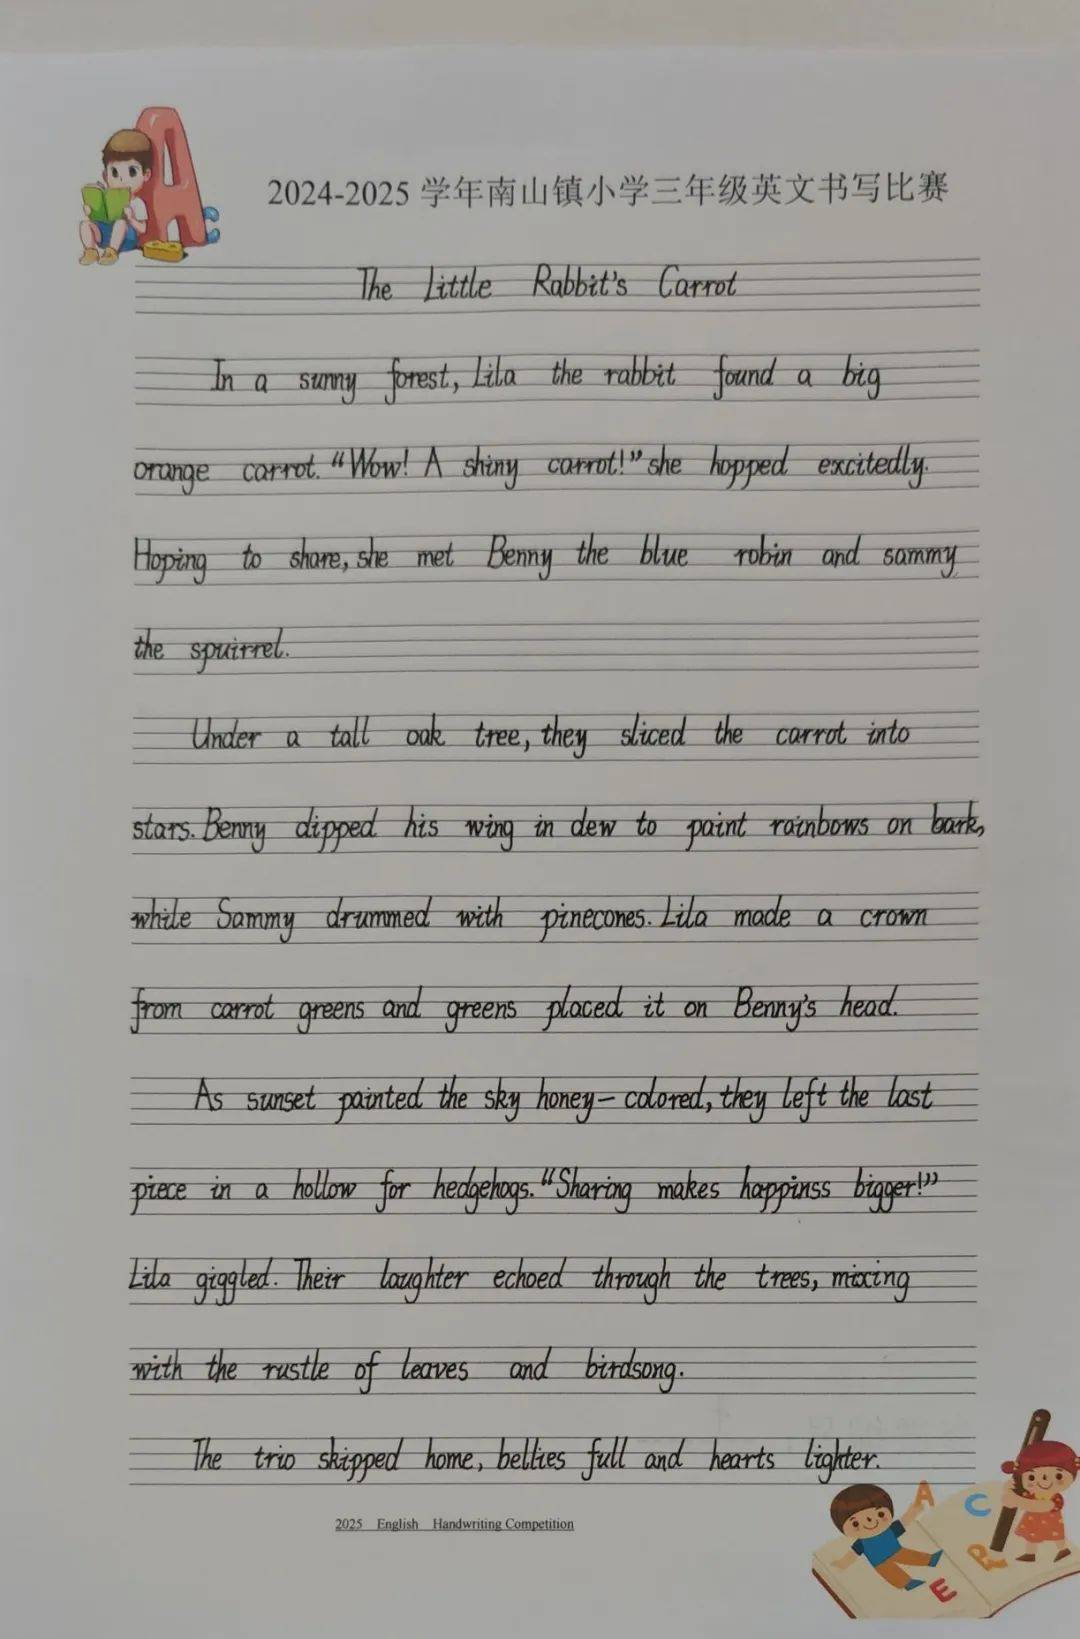 2024-2025 学年南山镇小学三年级英文书写比赛
The Little Rabbit's Carrot
In a sunny forest, Lila the rabbit found a big
orange carrot. "Wow! A shiny carrot!" she hopped excitedly.
Hoping to share, she met Benny the blue robin and sammy
the spuirrel.
Under a tall oak tree, they sliced the carrot into
stars. Benny dipped his wing in dew to paint rainbows on bark,
while Sammy drummed with pinecones. Lila made a crown
from carrot greens and greens placed it on Benny's head.
As sunset painted the sky honey-colored, they left the last
piece in a hollow for hedgehogs. "Sharing makes happinss bigger!"
Lila giggled. Their laughter echoed through the trees, mixing
with the rustle of leaves and birdsong.
The trio skipped home, bellies full and hearts lighter.
2025 English Handwriting Competition
A
A C
P
E